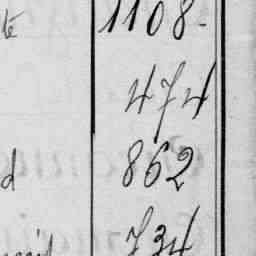 té 1108.-
474
d 862
734